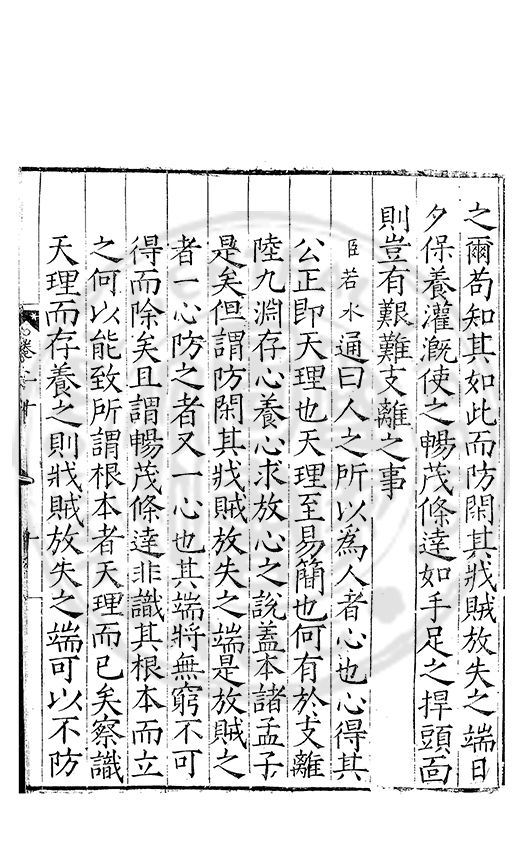 之爾苟知其如此而防閑其戕賊放失之端日
夕保養灌漑使之暢茂條達如手足之捍頭靣
則豈有艱難支離之事
臣若水通曰人之所以爲人者心也心得其
公正即天理也天理至易簡也何有於支離
陸九淵存心養心求放心之說蓋本諸孟子
是矣但謂防閑其戕賊放失之端是放賊之
者一心防之者又一心也其端將無窮不可
得而除矣且謂暢茂條達非識其根本而立
之何以能致所謂根本者天理而已矣察識
天理而存養之則戕賊放失之端可以不防